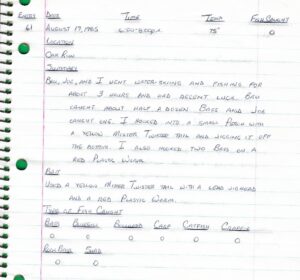 Entry Date Time Temp Fish Caught
61 August 17, 1985 6:00-8:00p.m 75° 0
Location
Oak Run
Summary
Bru, Joe, and I went water-skiing and fishing for
about 3 hours and had decent luck. Bru
caught about half a dozen Bass and Joe
caught one. I hooked into a small Perch with
a yellow Mister Twister tail and jigging it off
the bottom. I also hooked two Bass on a
Red Plastic Worm.
Bait
Used a yellow Mister Twister tail with a lead jighead
and a red Plastic Worm.
Type of Fish Caught
Bass Bluegill Bullhead Carp Catfish Crappie
0 0 0 0 0 0
Rock Bass Shad
0 0